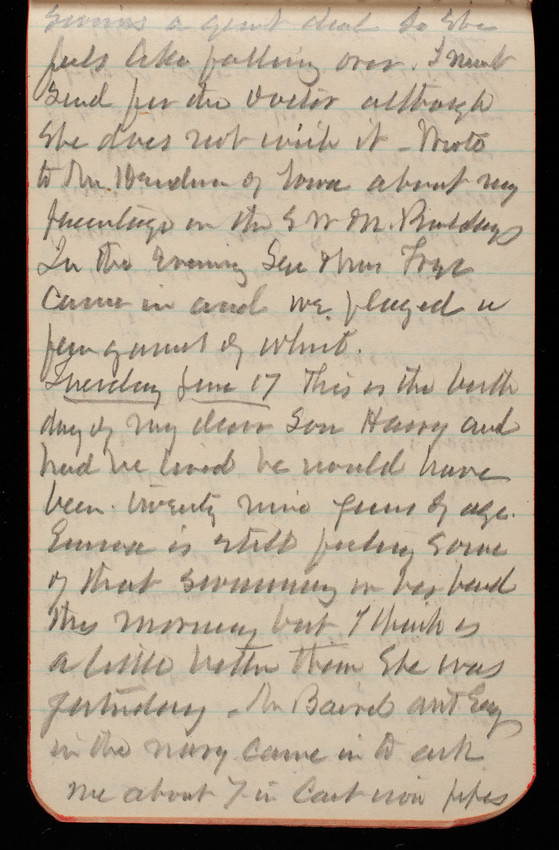 swims a great deal so she
feels like falling over. I must
send for the doctor although
she does not wish it - Wrote
to Mr. of Iowa about my
on the S W & N. Buildings
In the Evening Gen & Mrs
came in and we played a
few games of whist.
Tuesday June 17 This is the birth
day of my dear Son Harry and
had he lived he would have
been twenty nine years of age.
Emma is still feeling some
of that swimming in her head
this morning but I think is
a little better than she was
yesterday - Mr Baird Eng
in the navy came in to ask
me about in Cast iron pipes